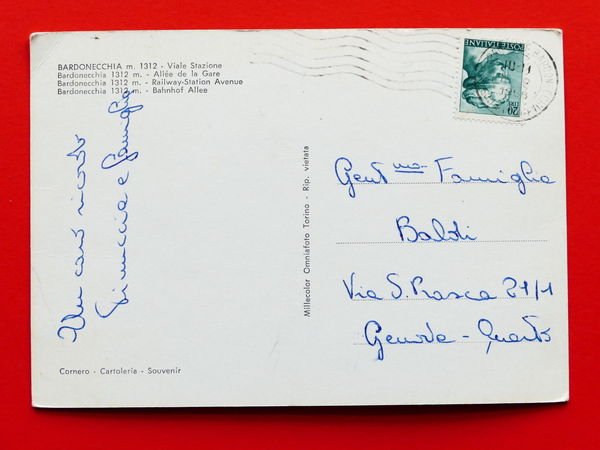 BARDONECCHIA m. 1312 - Viale Stazione
Bardonecchia 1312 m. - Allée de la Gare
Bardonecchia 1312 m. - Railway-Station Avenue
Bardonecchia 1312 m. - Bahnhof Allee
Un caro ricordo
Pinuccia e famiglia
Cornero - Cartoleria - Souvenir
Millecolor Omniafoto Torino - Rip. vietata
POSTE ITALIANE
LIRE 20
Gent.mo Famiglia
Baldi
Via S. Prasca 21/1
Genova - Quarto